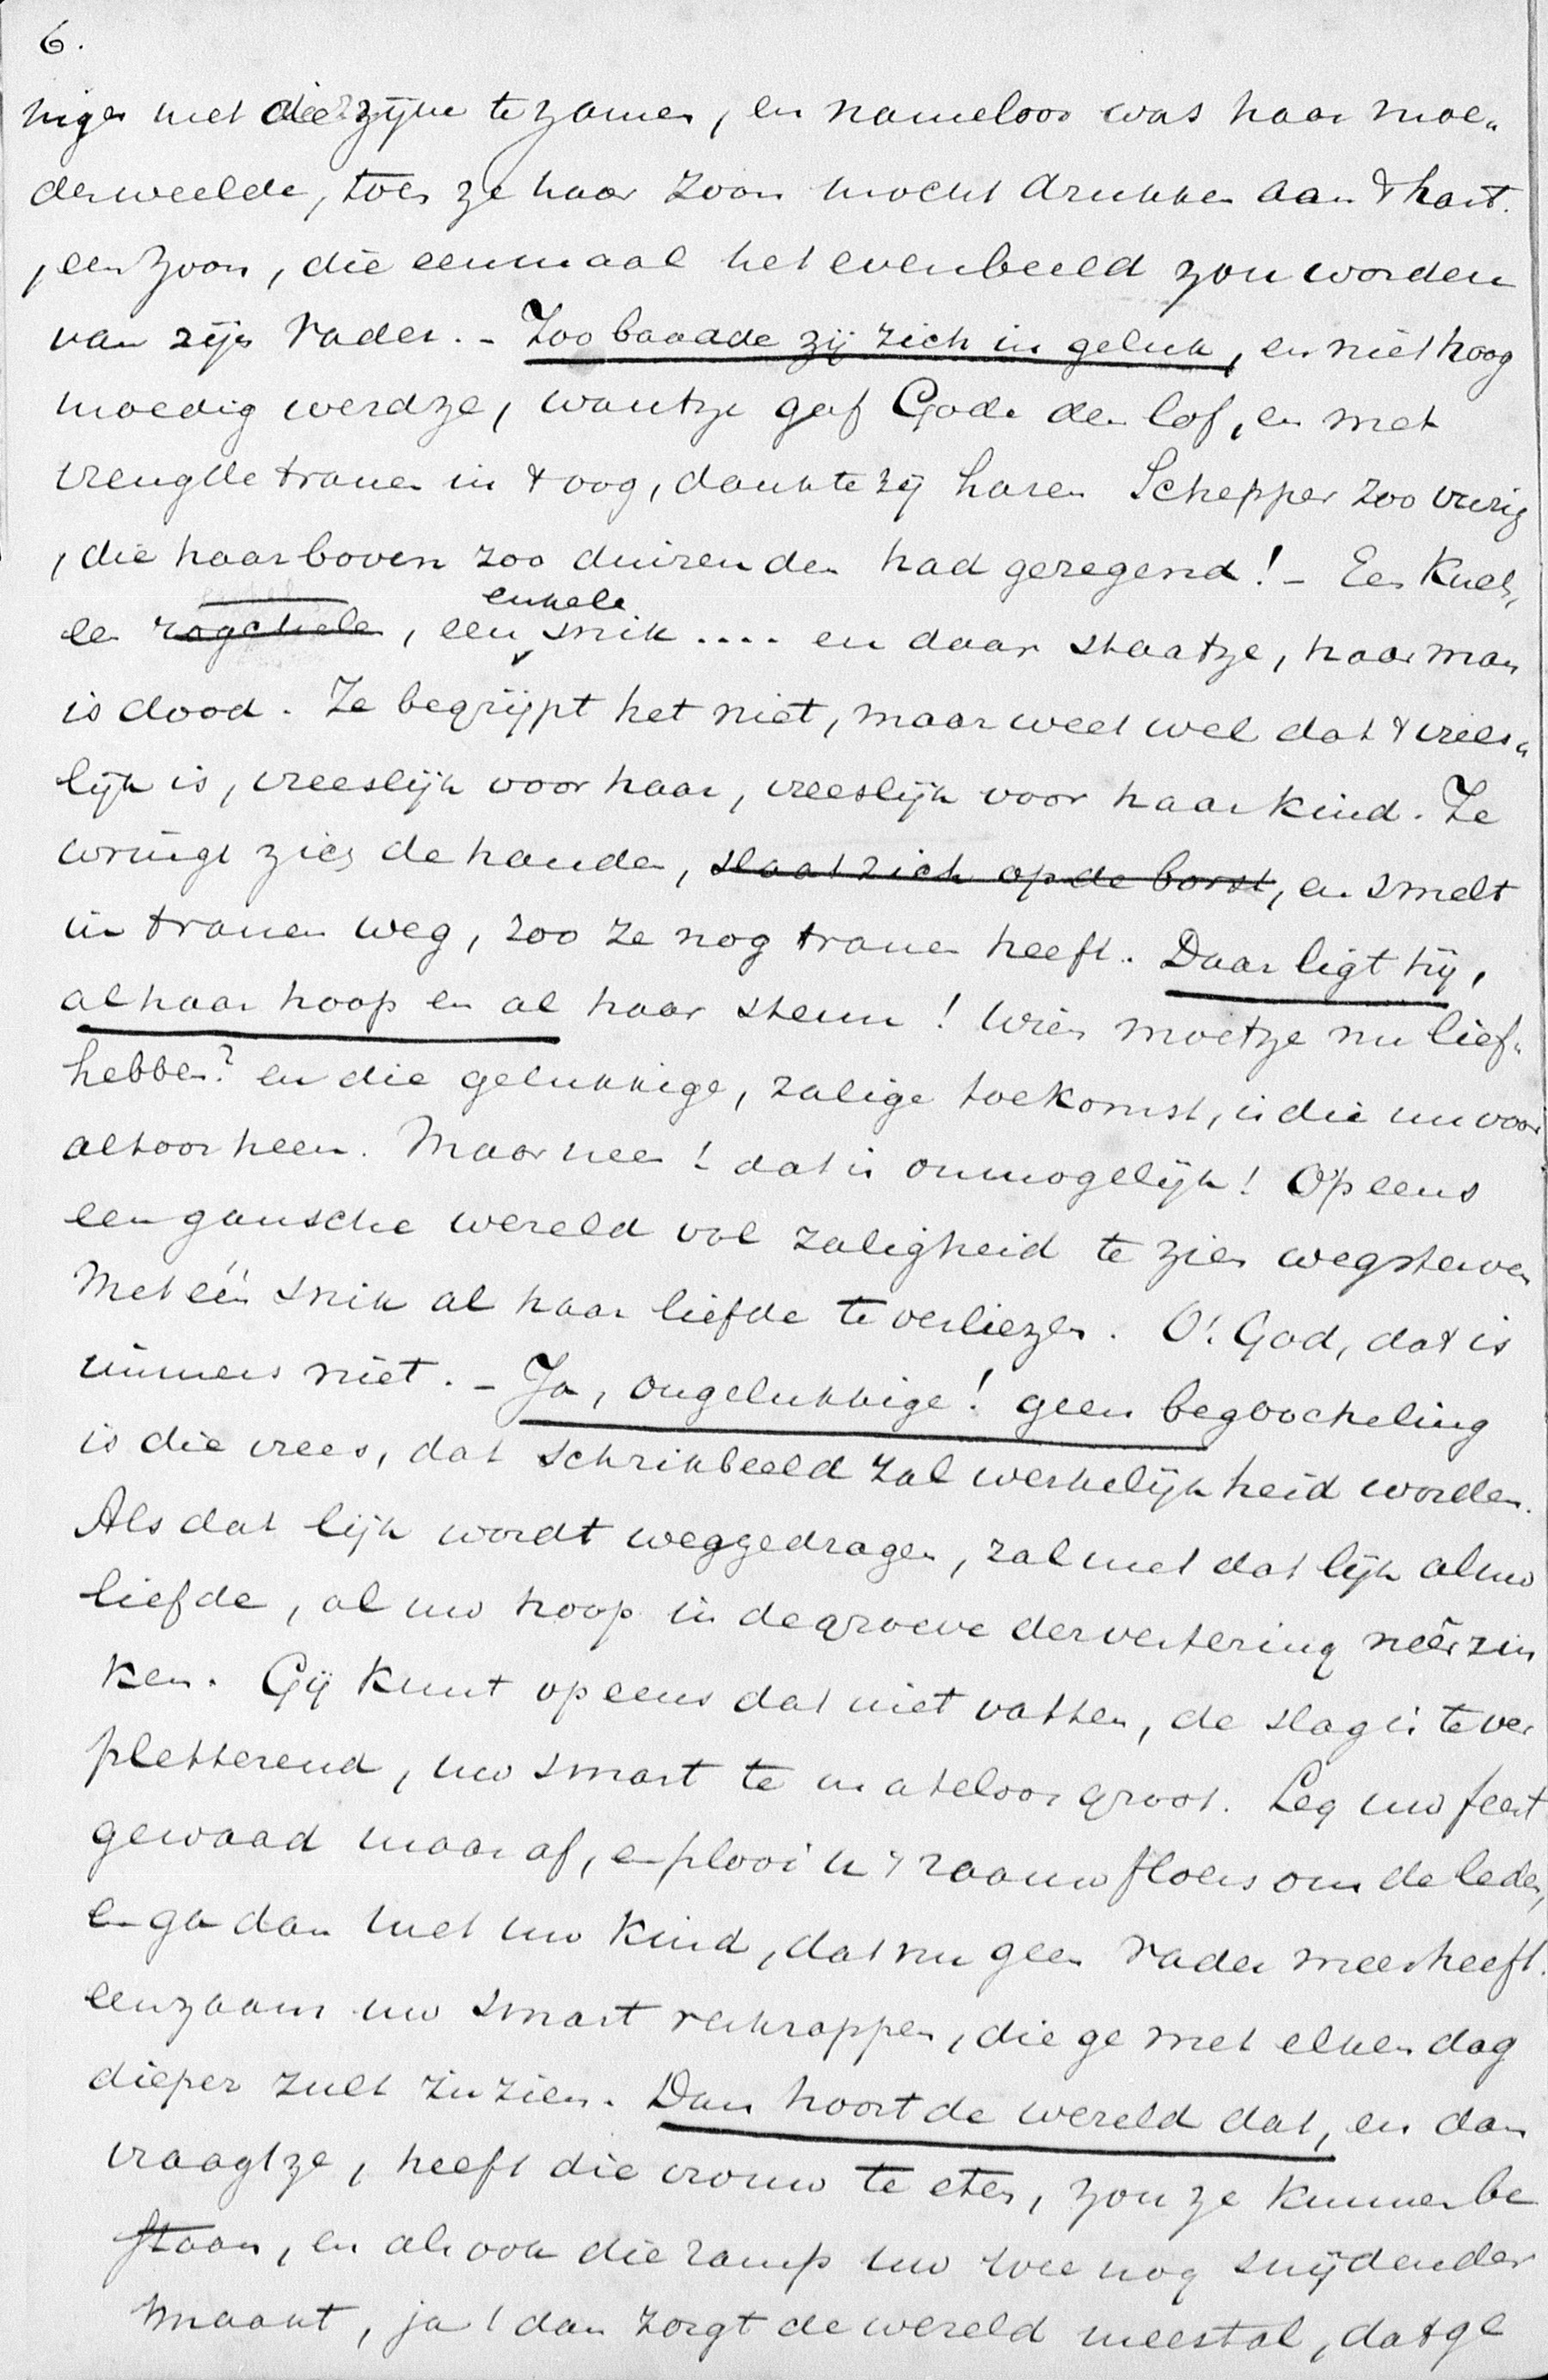 6.
niger met die zijne te zamen, en nameloos was haar moe„
derweelde, toen ze haar zoon mocht drukken aan 't hart.
, een zoon, die eenmaal het evenbeeld zou worden
van zijn Vader. - Zoo baadde zij zich in geluk, en niet hoog
moedig werd ze, want ze gaf Gode den lof, en met
vreugde tranen in 't oog, dankte zij haren Schepper zoo vurig
, die haar boven zoo duizenden had gezegend! - Een
een , een enkele snik .... en daar staat ze, haar man
is dood. Ze begrijpt het niet, maar weet wel dat 't vrees„
lijk is, vreeslijk voor haar, vreeslijk voor haar kind. Ze
wringt zich de handen, slaat zich op de borst, en smelt
in tranen weg, zoo ze nog tranen heeft. Daar ligt hij,
al haar hoop en al haar steun! Wien moet ze nu lief„
hebben? en die gelukkige, zalige toekomst, is die nu voor
altoos heen. Maar neen! dat is onmogelijk! Op eens
een gansche wereld vol zaligheid te zien wegsterven
Met één snik al haar liefde te verliezen. O! God, dat is
immers niet. - Ja, ongelukkige! geen begoocheling
is die vrees, dat schrikbeeld zal werkelijkheid worden.
Als dat lijk wordt weggedragen, zal met dat lijk al uw
liefde, al uw hoop in de groeve der vertering neêrzin
ken. Gij kunt op eens dat niet vatten, de slag is te ver
pletterend, uw smart te mateloos groot. Leg uw feest
gewaad maar af, en plooi u 't rouwfloers om de leden,
en ga dan met uw kind, dat nu geen Vader meer heeft.
eenzaam uw smart verkroppen, die ge met elken dag
dieper zult inzien. Dan hoort de wereld dat, en dan
vraagt ze, heeft die vrouw te eten, zou ze kunnen be
staan, en als ook die ramp uw wee nog snijdender
maakt, ja! dan zorgt de wereld meestal, dat ge